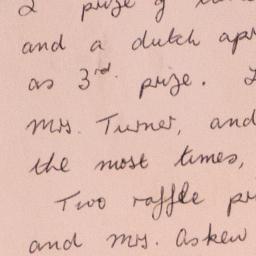 2 prize of
and a dutch apr
as 3rd. prize.
Mrs. Turner, and
the most times,
Two raffle pr
and Mrs. Askew